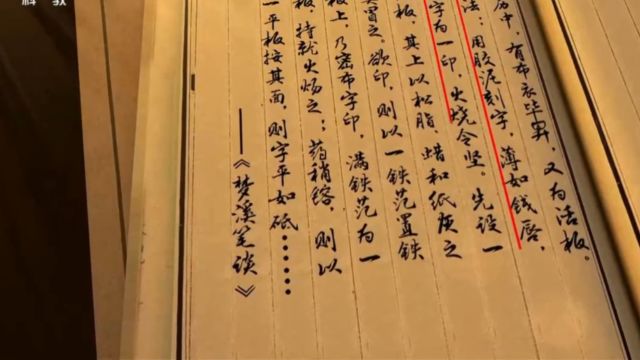 科教
历中，有布衣毕昇，又为活板。
法：用胶泥刻字，薄如钱唇，
字为一印，火烧令坚。先设一
板，其上以松脂，蜡和纸灰之
冒之。欲印，则以一铁范置铁
板上，乃密布字印，满铁范为一
板，持就火炀之；药稍镕，则以
一平板按其面，则字平如砥……
——《梦溪笔谈》